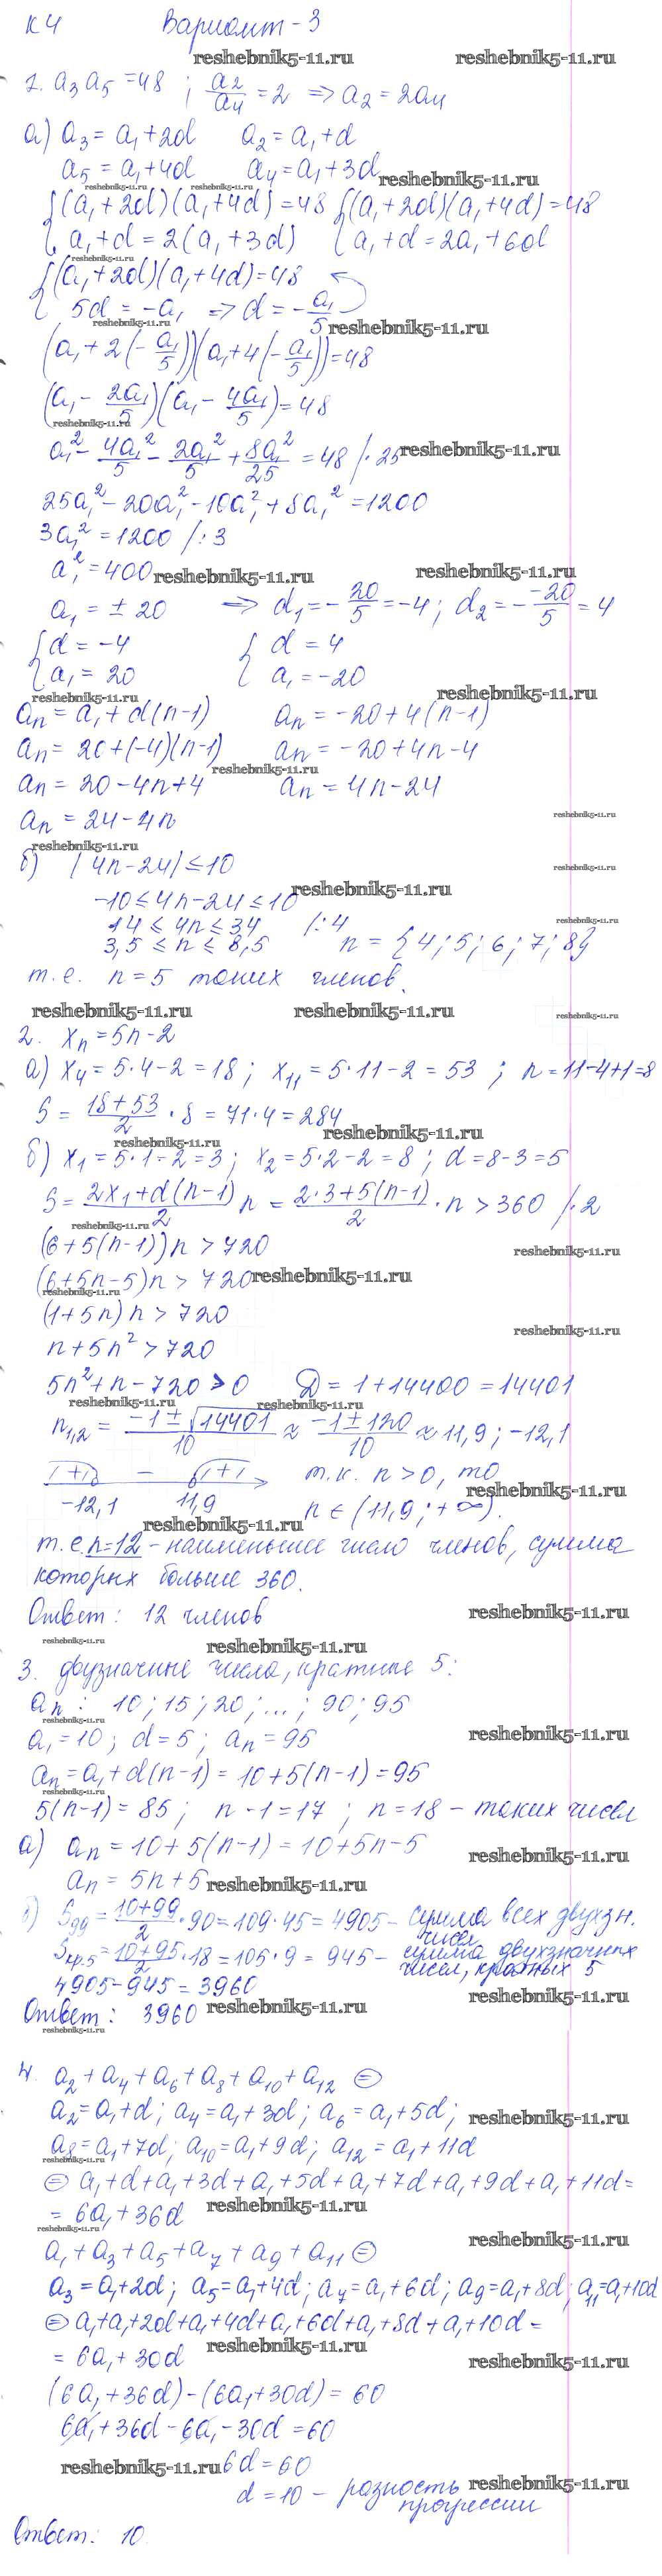 К 4 Вариант - 3
reshebnik5-11.ru reshebnik5-11.ru
1. a₃a₅ = 48 ; a₂/a₄ = 2 ⇒ a₂ = 2a₄
а) a₃ = a₁ + 2d a₂ = a₁ + d
a₅ = a₁ + 4d a₄ = a₁ + 3d reshebnik5-11.ru
reshebnik5-11.ru reshebnik5-11.ru
{ (a₁ + 2d)(a₁ + 4d) = 48 { (a₁ + 2d)(a₁ + 4d) = 48
{ a₁ + d = 2(a₁ + 3d) { a₁ + d = 2a₁ + 6d
reshebnik5-11.ru
{ (a₁ + 2d)(a₁ + 4d) = 48
{ 5d = -a₁ ⇒ d = -a₁/5
reshebnik5-11.ru reshebnik5-11.ru
(a₁ + 2(-a₁/5))(a₁ + 4(-a₁/5)) = 48
(a₁ - 2a₁/5)(a₁ - 4a₁/5) = 48
reshebnik5-11.ru
a₁² - 4a₁²/5 - 2a₁²/5 + 8a₁²/25 = 48 /· 25 reshebnik5-11.ru
25a₁² - 20a₁² - 10a₁² + 8a₁² = 1200
3a₁² = 1200 /: 3
a₁² = 400 reshebnik5-11.ru reshebnik5-11.ru
a₁ = ± 20 ⇒ d₁ = -20/5 = -4 ; d₂ = - -20/5 = 4
{ d = -4 { d = 4
{ a₁ = 20 { a₁ = -20
reshebnik5-11.ru reshebnik5-11.ru
aₙ = a₁ + d(n-1) aₙ = -20 + 4(n-1)
aₙ = 20 + (-4)(n-1) aₙ = -20 + 4n - 4
reshebnik5-11.ru
aₙ = 20 - 4n + 4 aₙ = 4n - 24
aₙ = 24 - 4n reshebnik5-11.ru
reshebnik5-11.ru
б) |4n - 24| ≤ 10 reshebnik5-11.ru
-10 ≤ 4n - 24 ≤ 10 reshebnik5-11.ru
14 ≤ 4n ≤ 34 /: 4 reshebnik5-11.ru
3,5 ≤ n ≤ 8,5 n = {4; 5; 6; 7; 8}
т.е. n = 5 таких членов.
reshebnik5-11.ru reshebnik5-11.ru reshebnik5-11.ru
2. xₙ = 5n - 2
а) x₄ = 5·4 - 2 = 18 ; x₁₁ = 5·11 - 2 = 53 ; n = 11-4+1 = 8
S = 18+53/2 · 8 = 71·4 = 284
reshebnik5-11.ru reshebnik5-11.ru
б) x₁ = 5·1 - 2 = 3 ; x₂ = 5·2 - 2 = 8 ; d = 8-3 = 5
S = 2x₁+d(n-1)/2 n = 2·3+5(n-1)/2 · n > 360 /· 2
reshebnik5-11.ru
(6 + 5(n-1))n > 720 reshebnik5-11.ru
(6 + 5n - 5)n > 720 reshebnik5-11.ru
reshebnik5-11.ru
(1 + 5n)n > 720 reshebnik5-11.ru
n + 5n² > 720
5n² + n - 720 > 0 D = 1 + 14400 = 14401
reshebnik5-11.ru reshebnik5-11.ru
n₁,₂ = -1±√14401/10 ≈ -1±120/10 ≈ 11,9 ; -12,1
+ - + т.к. n > 0, то reshebnik5-11.ru
-12,1 11,9 n ∈ (11,9 ; +∞).
reshebnik5-11.ru
т.е. n = 12 - наименьшее число членов, сумма
которых больше 360.
Ответ: 12 членов reshebnik5-11.ru
reshebnik5-11.ru reshebnik5-11.ru
3. двузначные числа, кратные 5:
aₙ : 10 ; 15 ; 20 ; ... ; 90 ; 95
reshebnik5-11.ru
a₁ = 10 ; d = 5 ; aₙ = 95 reshebnik5-11.ru
aₙ = a₁ + d(n-1) = 10 + 5(n-1) = 95
reshebnik5-11.ru
5(n-1) = 85 ; n - 1 = 17 ; n = 18 - таких чисел
а) aₙ = 10 + 5(n-1) = 10 + 5n - 5 reshebnik5-11.ru
aₙ = 5n + 5 reshebnik5-11.ru
б) S₉₉ = 10+99/2 · 90 = 109·45 = 4905 - сумма всех двузн. чисел
Sкр.5 = 10+95/2 · 18 = 105·9 = 945 - сумма двухзначных чисел, кратных 5
4905 - 945 = 3960 reshebnik5-11.ru
Ответ: 3960 reshebnik5-11.ru
reshebnik5-11.ru
4. a₂ + a₄ + a₆ + a₈ + a₁₀ + a₁₂ ⊜
a₂ = a₁ + d ; a₄ = a₁ + 3d ; a₆ = a₁ + 5d ; reshebnik5-11.ru
a₈ = a₁ + 7d ; a₁₀ = a₁ + 9d ; a₁₂ = a₁ + 11d
reshebnik5-11.ru
⊜ a₁ + d + a₁ + 3d + a₁ + 5d + a₁ + 7d + a₁ + 9d + a₁ + 11d =
= 6a₁ + 36d reshebnik5-11.ru
reshebnik5-11.ru reshebnik5-11.ru
a₁ + a₃ + a₅ + a₇ + a₉ + a₁₁ ⊜
a₃ = a₁ + 2d ; a₅ = a₁ + 4d ; a₇ = a₁ + 6d ; a₉ = a₁ + 8d ; a₁₁ = a₁ + 10d
⊜ a₁ + a₁ + 2d + a₁ + 4d + a₁ + 6d + a₁ + 8d + a₁ + 10d =
= 6a₁ + 30d reshebnik5-11.ru reshebnik5-11.ru
(6a₁ + 36d) - (6a₁ + 30d) = 60
6a₁ + 36d - 6a₁ - 30d = 60
reshebnik5-11.ru 6d = 60
d = 10 - разность прогрессии reshebnik5-11.ru
Ответ: 10